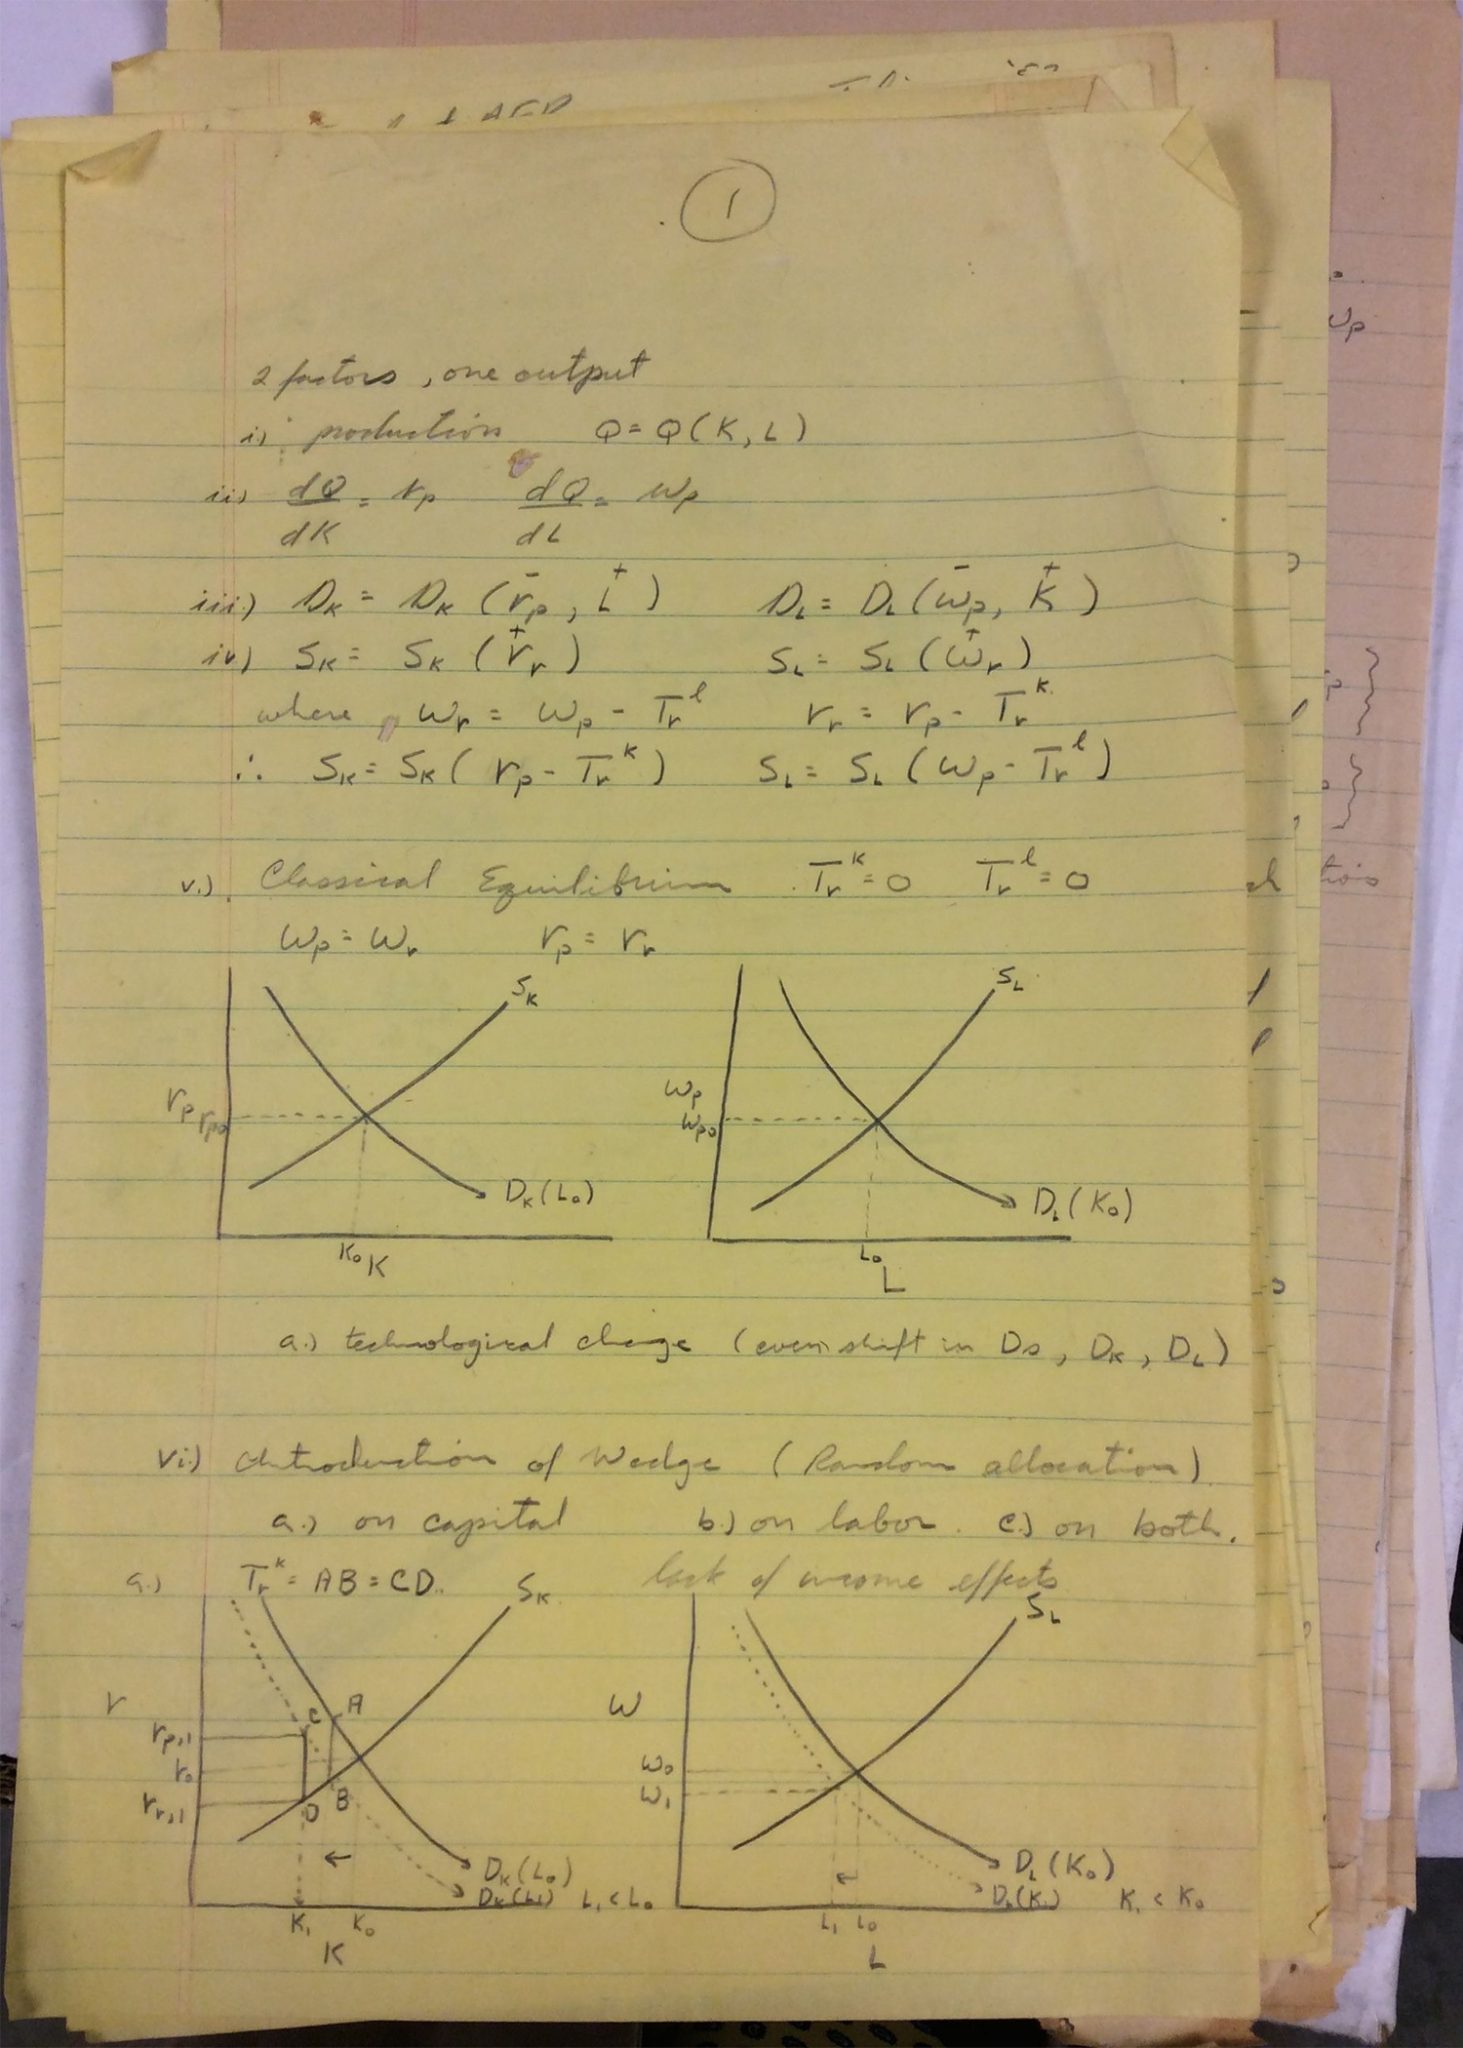 1
2 factors, one output
i) production Q = Q(K, L)
ii) dQ/dK = rₚ dQ/dL = wₚ
iii.) D_K = D_K (r̄ₚ, L⁺) D_L = D_L (w̄ₚ, K⁺)
iv) S_K = S_K (r⁺ᵣ) S_L = S_L (w⁺ᵣ)
where wᵣ = wₚ - Tᵣˡ rᵣ = rₚ - Tᵣᵏ
∴ S_K = S_K (rₚ - Tᵣᵏ) S_L = S_L (wₚ - Tᵣˡ)
v.) Classical Equilibrium Tᵣᵏ = 0 Tᵣˡ = 0
wₚ = wᵣ rₚ = rᵣ
S_K S_L
rₚ wₚ
rₚ₀ wₚ₀
D_K (L₀) D_L (K₀)
K₀ L₀
K L
a.) technological change (even shift in Ds, D_K, D_L)
vi.) Introduction of Wedge (Random allocation)
a.) on capital b.) on labor. c.) on both.
a.) Tᵣᵏ = AB = CD. lack of income effects
S_K S_L
r C A w
rₚ,₁
r₀ w₀
rᵣ,₁ D B w₁
←
D_K (L₀) D_L (K₀)
D_K (L₁) L₁ < L₀ D_L (K₁) K₁ < K₀
K₁ K₀ L₁ L₀
K L